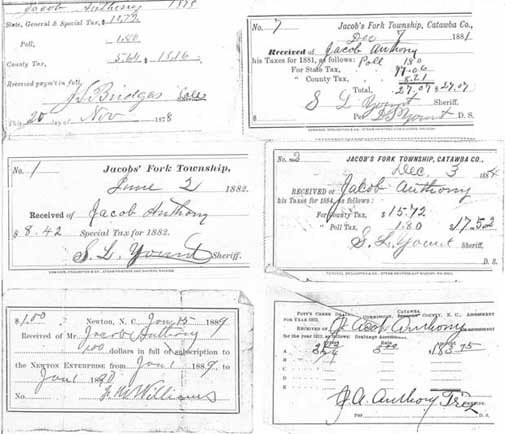 Jacob Anthony 1878
State, General & Special Tax, $ 11.72
Poll, 1.80
County Tax, 5.64 $ 13.16
Received paym't in full,
J S Bridges
This 20 day of Nov 1878
No. 7 Jacob's Fork Township, Catawba Co.,
Dec 9 1881
Received of Jacob Anthony
his Taxes for 1881, as follows: Poll 1.80
For State Tax, 17.06
" County Tax, 8.21
Total, 27.07 $27.07
S L Yount Sheriff.
Per Yount D. S.
No. 1 Jacobs' Fork Township,
June 2 1882.
Received of Jacob Anthony
$ 8.42 Special Tax for 1882.
S. L. Yount Sheriff.
No. 2 JACOB'S FORK TOWNSHIP, CATAWBA CO.,
Dec 3 1884
RECEIVED OF Jacob Anthony
his Taxes for 1884, as follows:
For County Tax, $15.72
" Poll Tax, 1.80 $17.52
S. L. Yount Sheriff.
D. S.
$1.00 Newton, N. C. Jan 15 1889
Received of Mr. Jacob Anthony
1.00 dollars in full of subscription to
the NEWTON ENTERPRISE from Jan 1 1889, to
Jan 1 1890
No. F. M. Williams
CATAWBA COUNTY, N. C.,
RECEIVED OF Jacob Anthony
for the year 1912, as follows: Drainage Assessment
A
B
C
D
E
J. A. Anthony Treas
Per